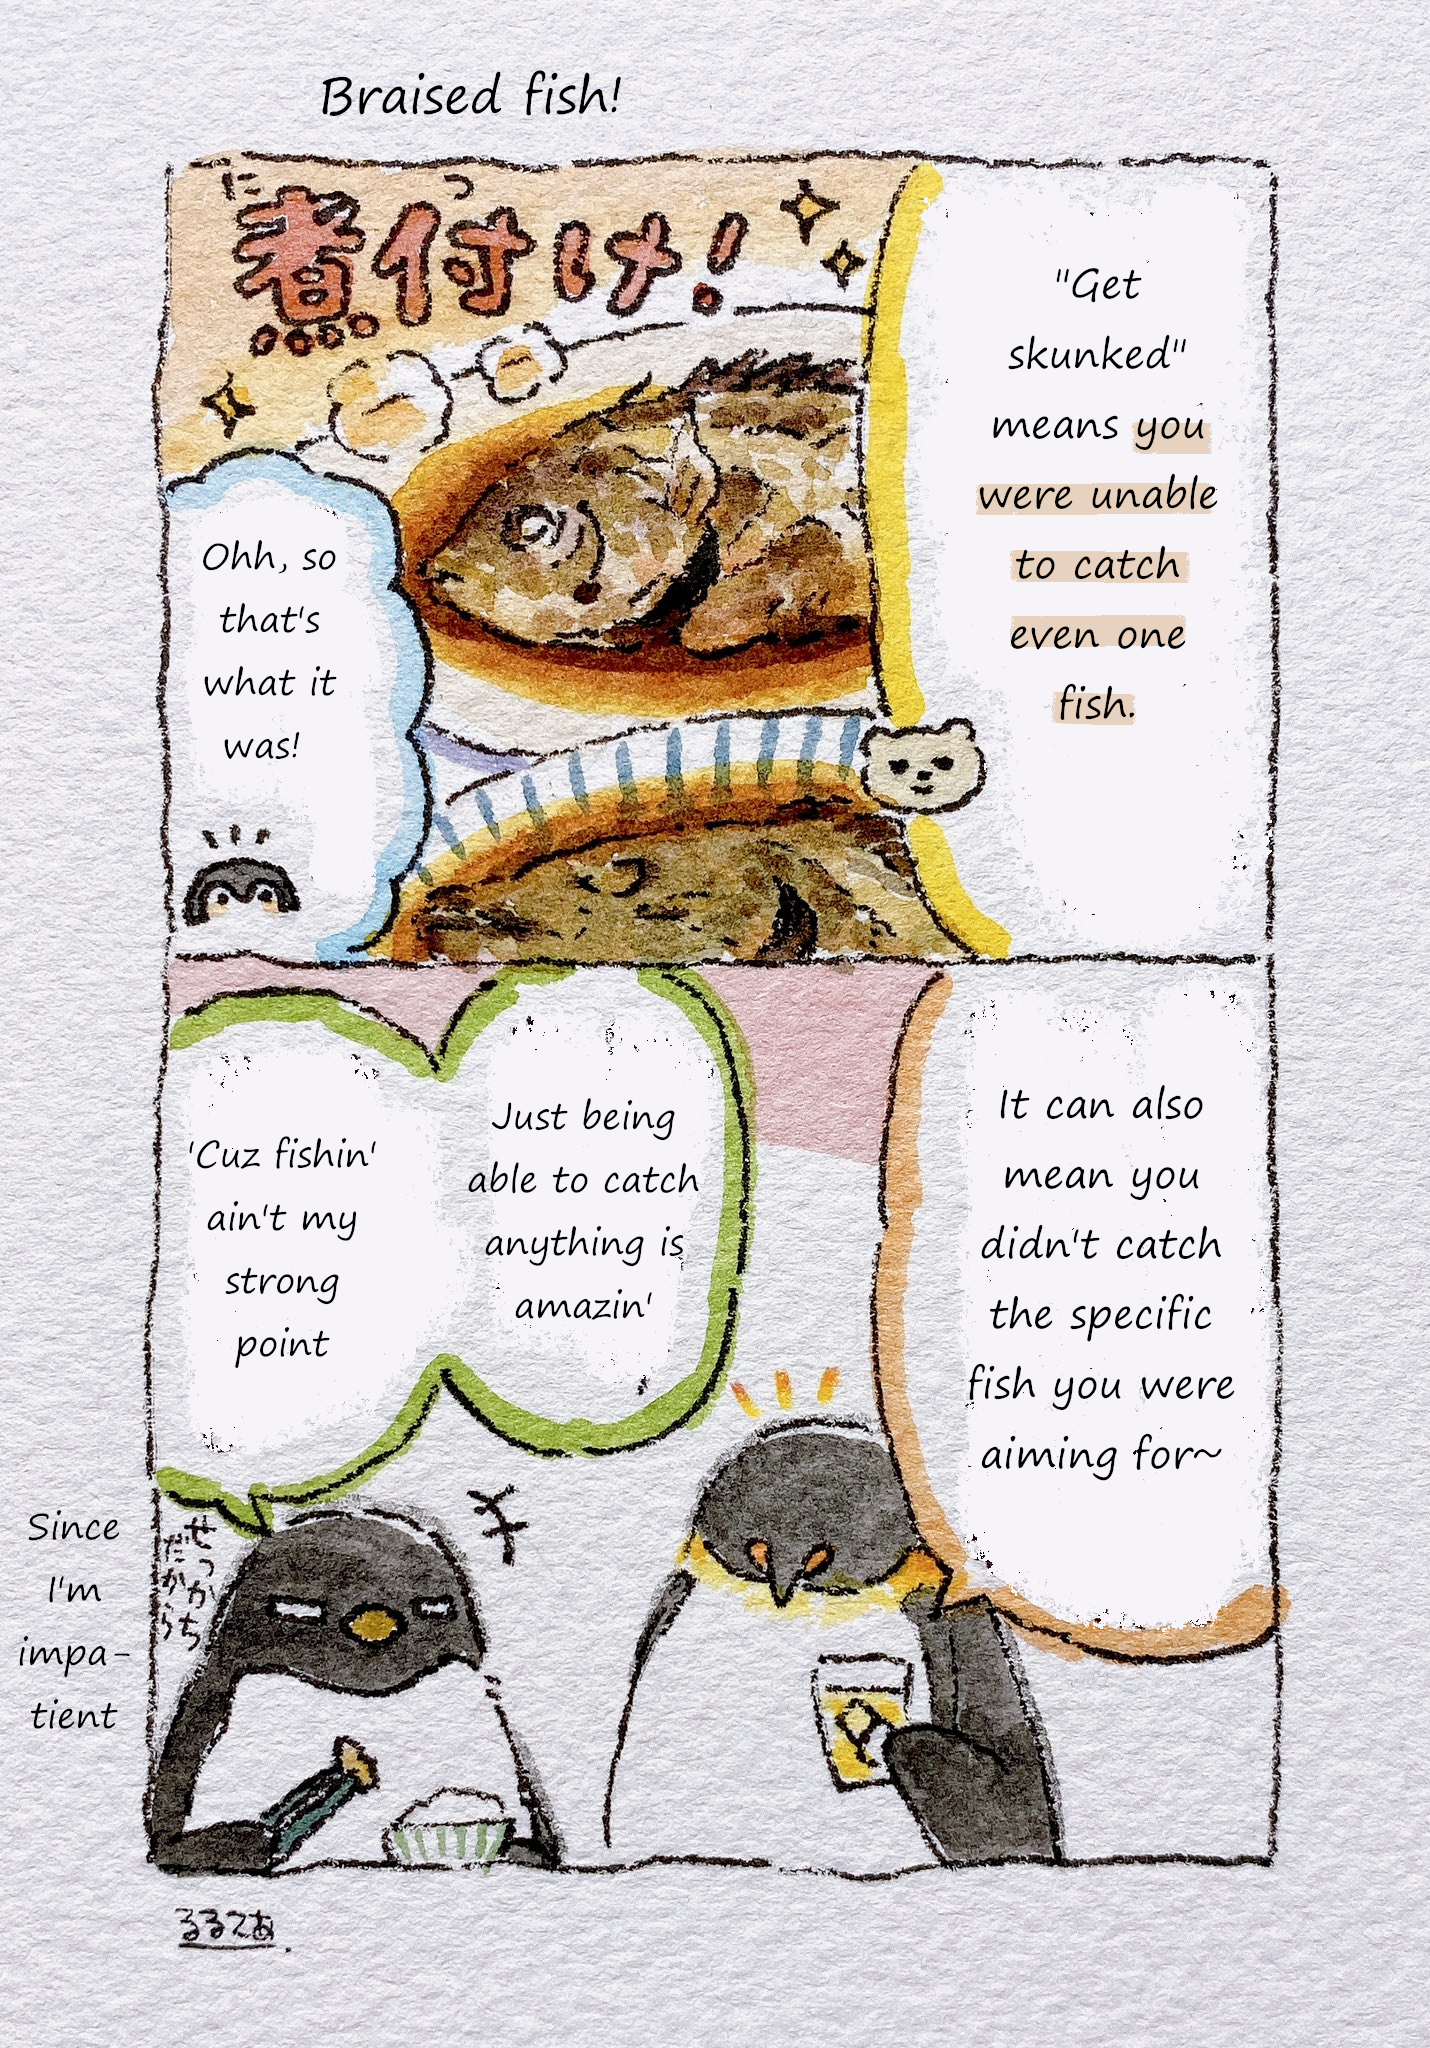 Braised fish!
に つ
煮付け!
"Get
skunked"
means you
were unable
to catch
even one
fish.
Ohh, so
that's
what it
was!
It can also
mean you
didn't catch
the specific
fish you were
aiming for~
Just being
able to catch
anything is
amazin'
'Cuz fishin'
ain't my
strong
point
せっかち
だから
Since
I'm
impa-
tient
るるてあ